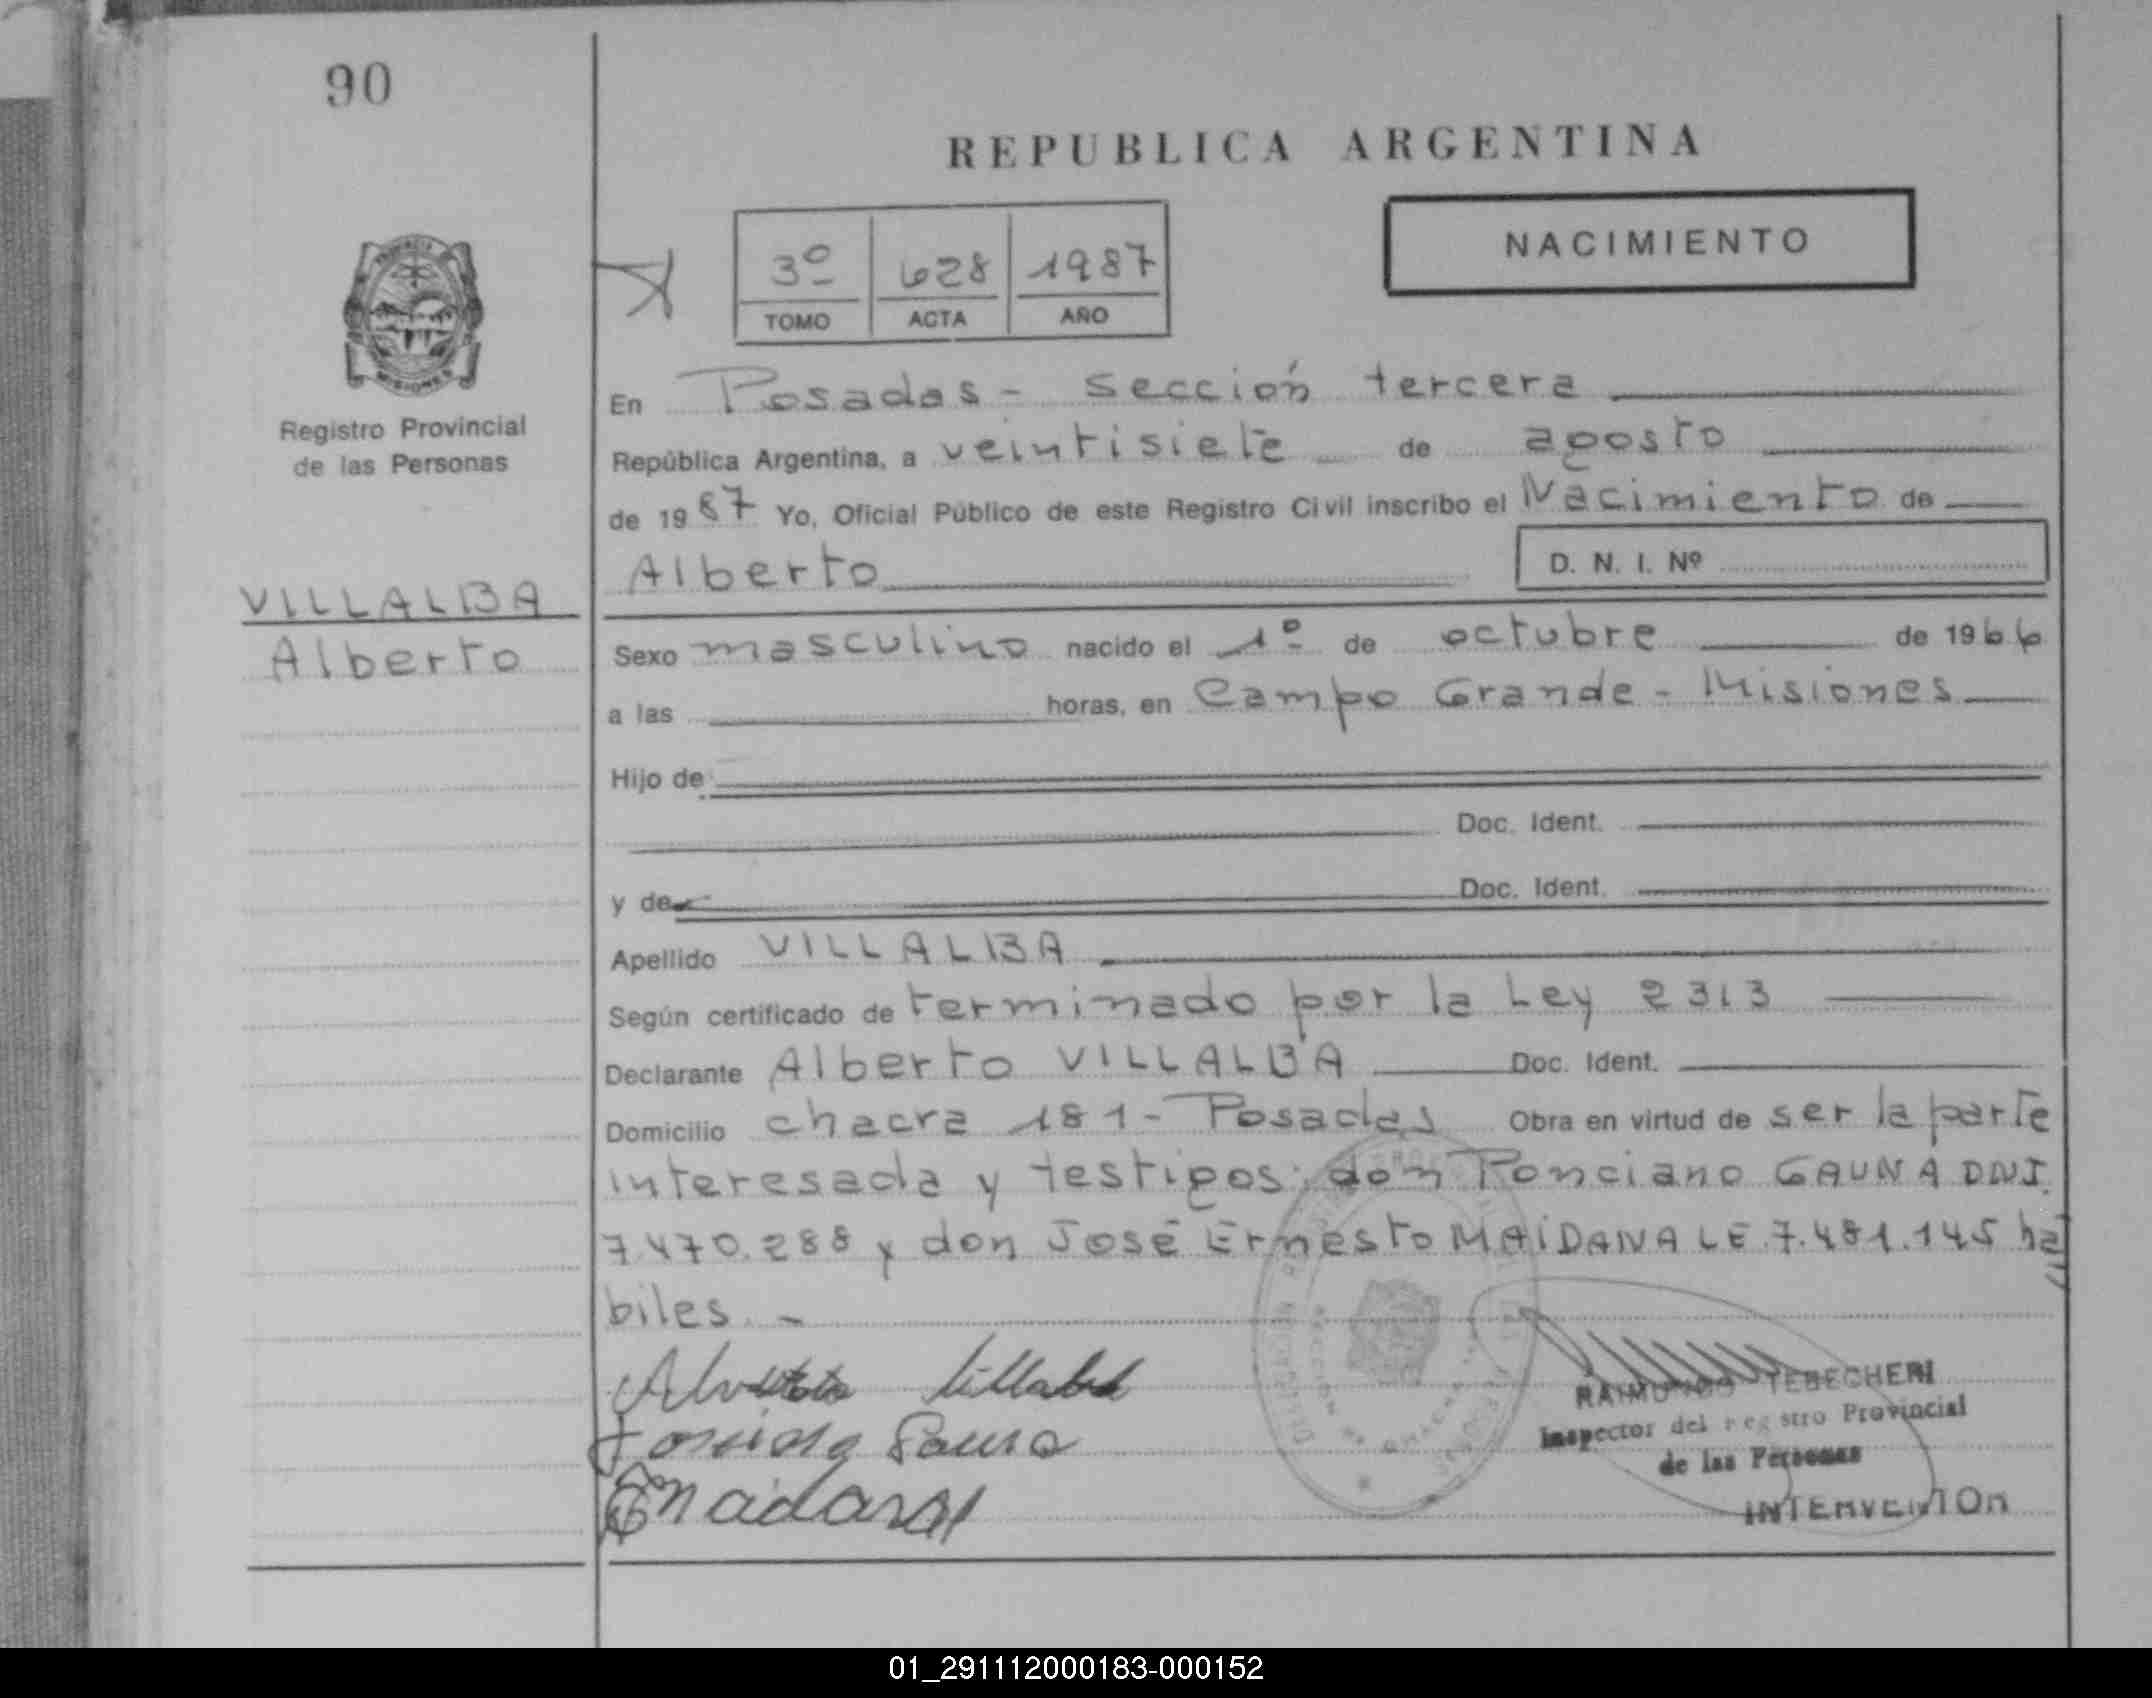 90
REPUBLICA ARGENTINA
NACIMIENTO
3º 628 1987
TOMO ACTA AÑO
MISIONES
Registro Provincial
de las Personas
VILLALBA
Alberto
En Posadas - sección tercera
República Argentina, a veintisiete de agosto
de 1987 Yo, Oficial Público de este Registro Civil inscribo el Nacimiento de
Alberto
D. N. I. Nº
Sexo masculino nacido el 1º de octubre de 1966
a las horas, en Campo Grande - Misiones
Hijo de
Doc. Ident.
y de Doc. Ident.
Apellido VILLALBA
Según certificado de terminado por la Ley 2313
Declarante Alberto VILLALBA Doc. Ident.
Domicilio chacra 181 - Posadas Obra en virtud de ser la parte
interesada y testigos: don Ponciano GAUNA DNI.
7.470.288 y don José Ernesto MAIDANA LE.7.481.145 há
biles. -
RAIMUNDO TEBECHERI
Inspector del registro Provincial
de las Personas
INTERVENCION
01_291112000183-000152